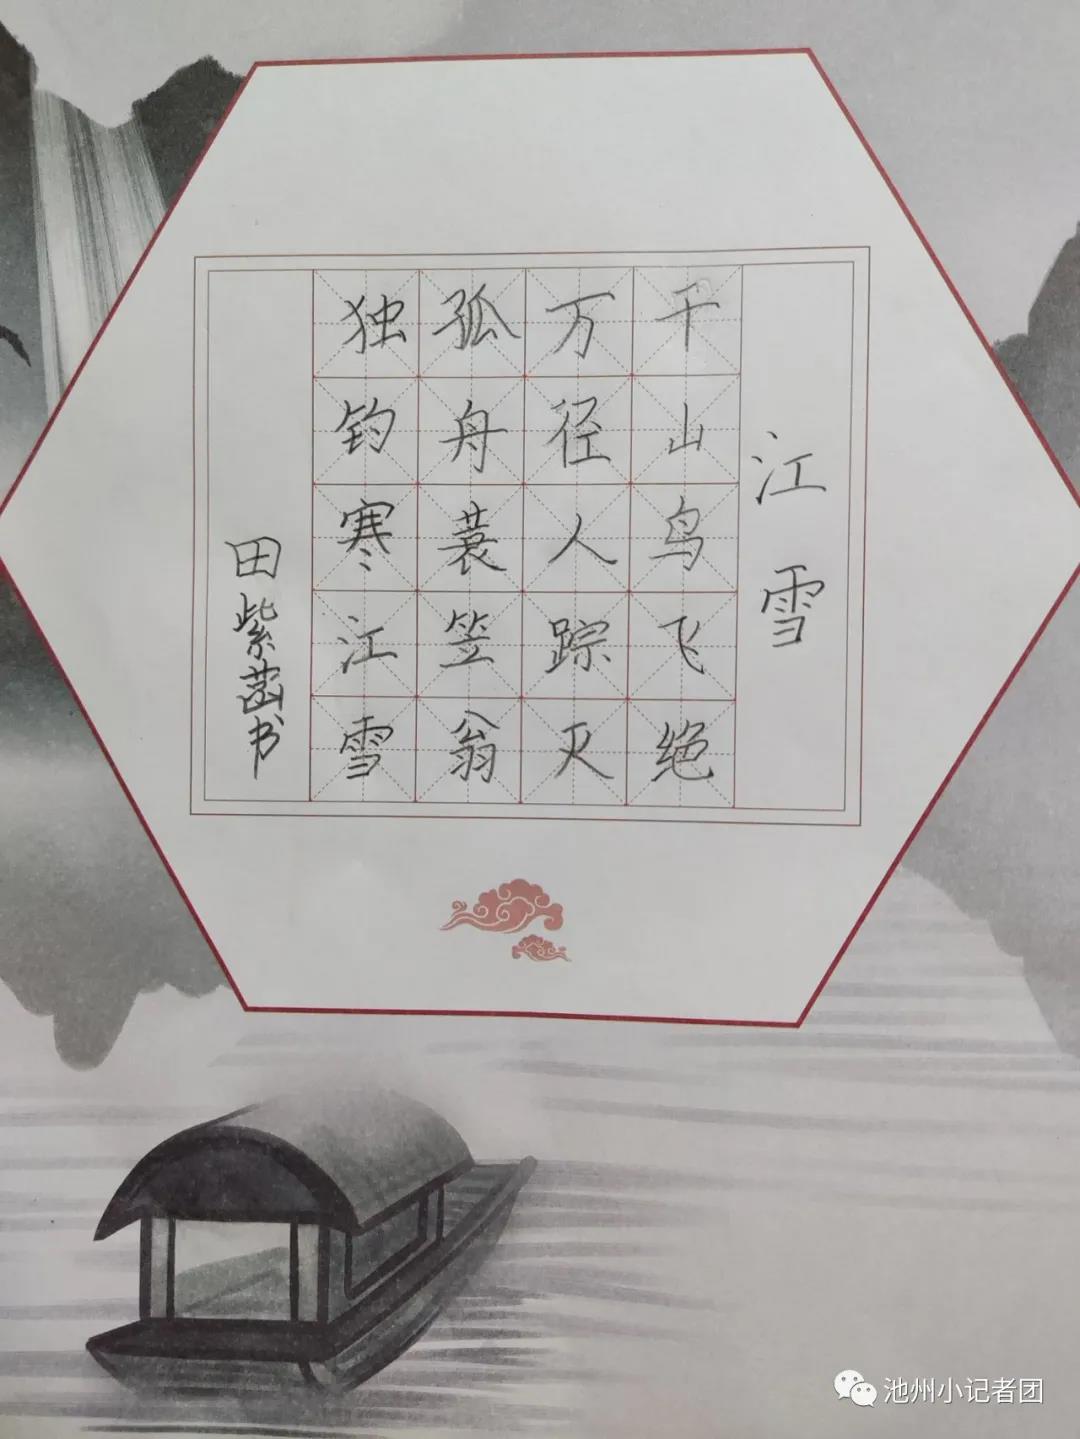 江雪
千山鸟飞绝
万径人踪灭
孤舟蓑笠翁
独钓寒江雪
田紫茜书
池州小记者团